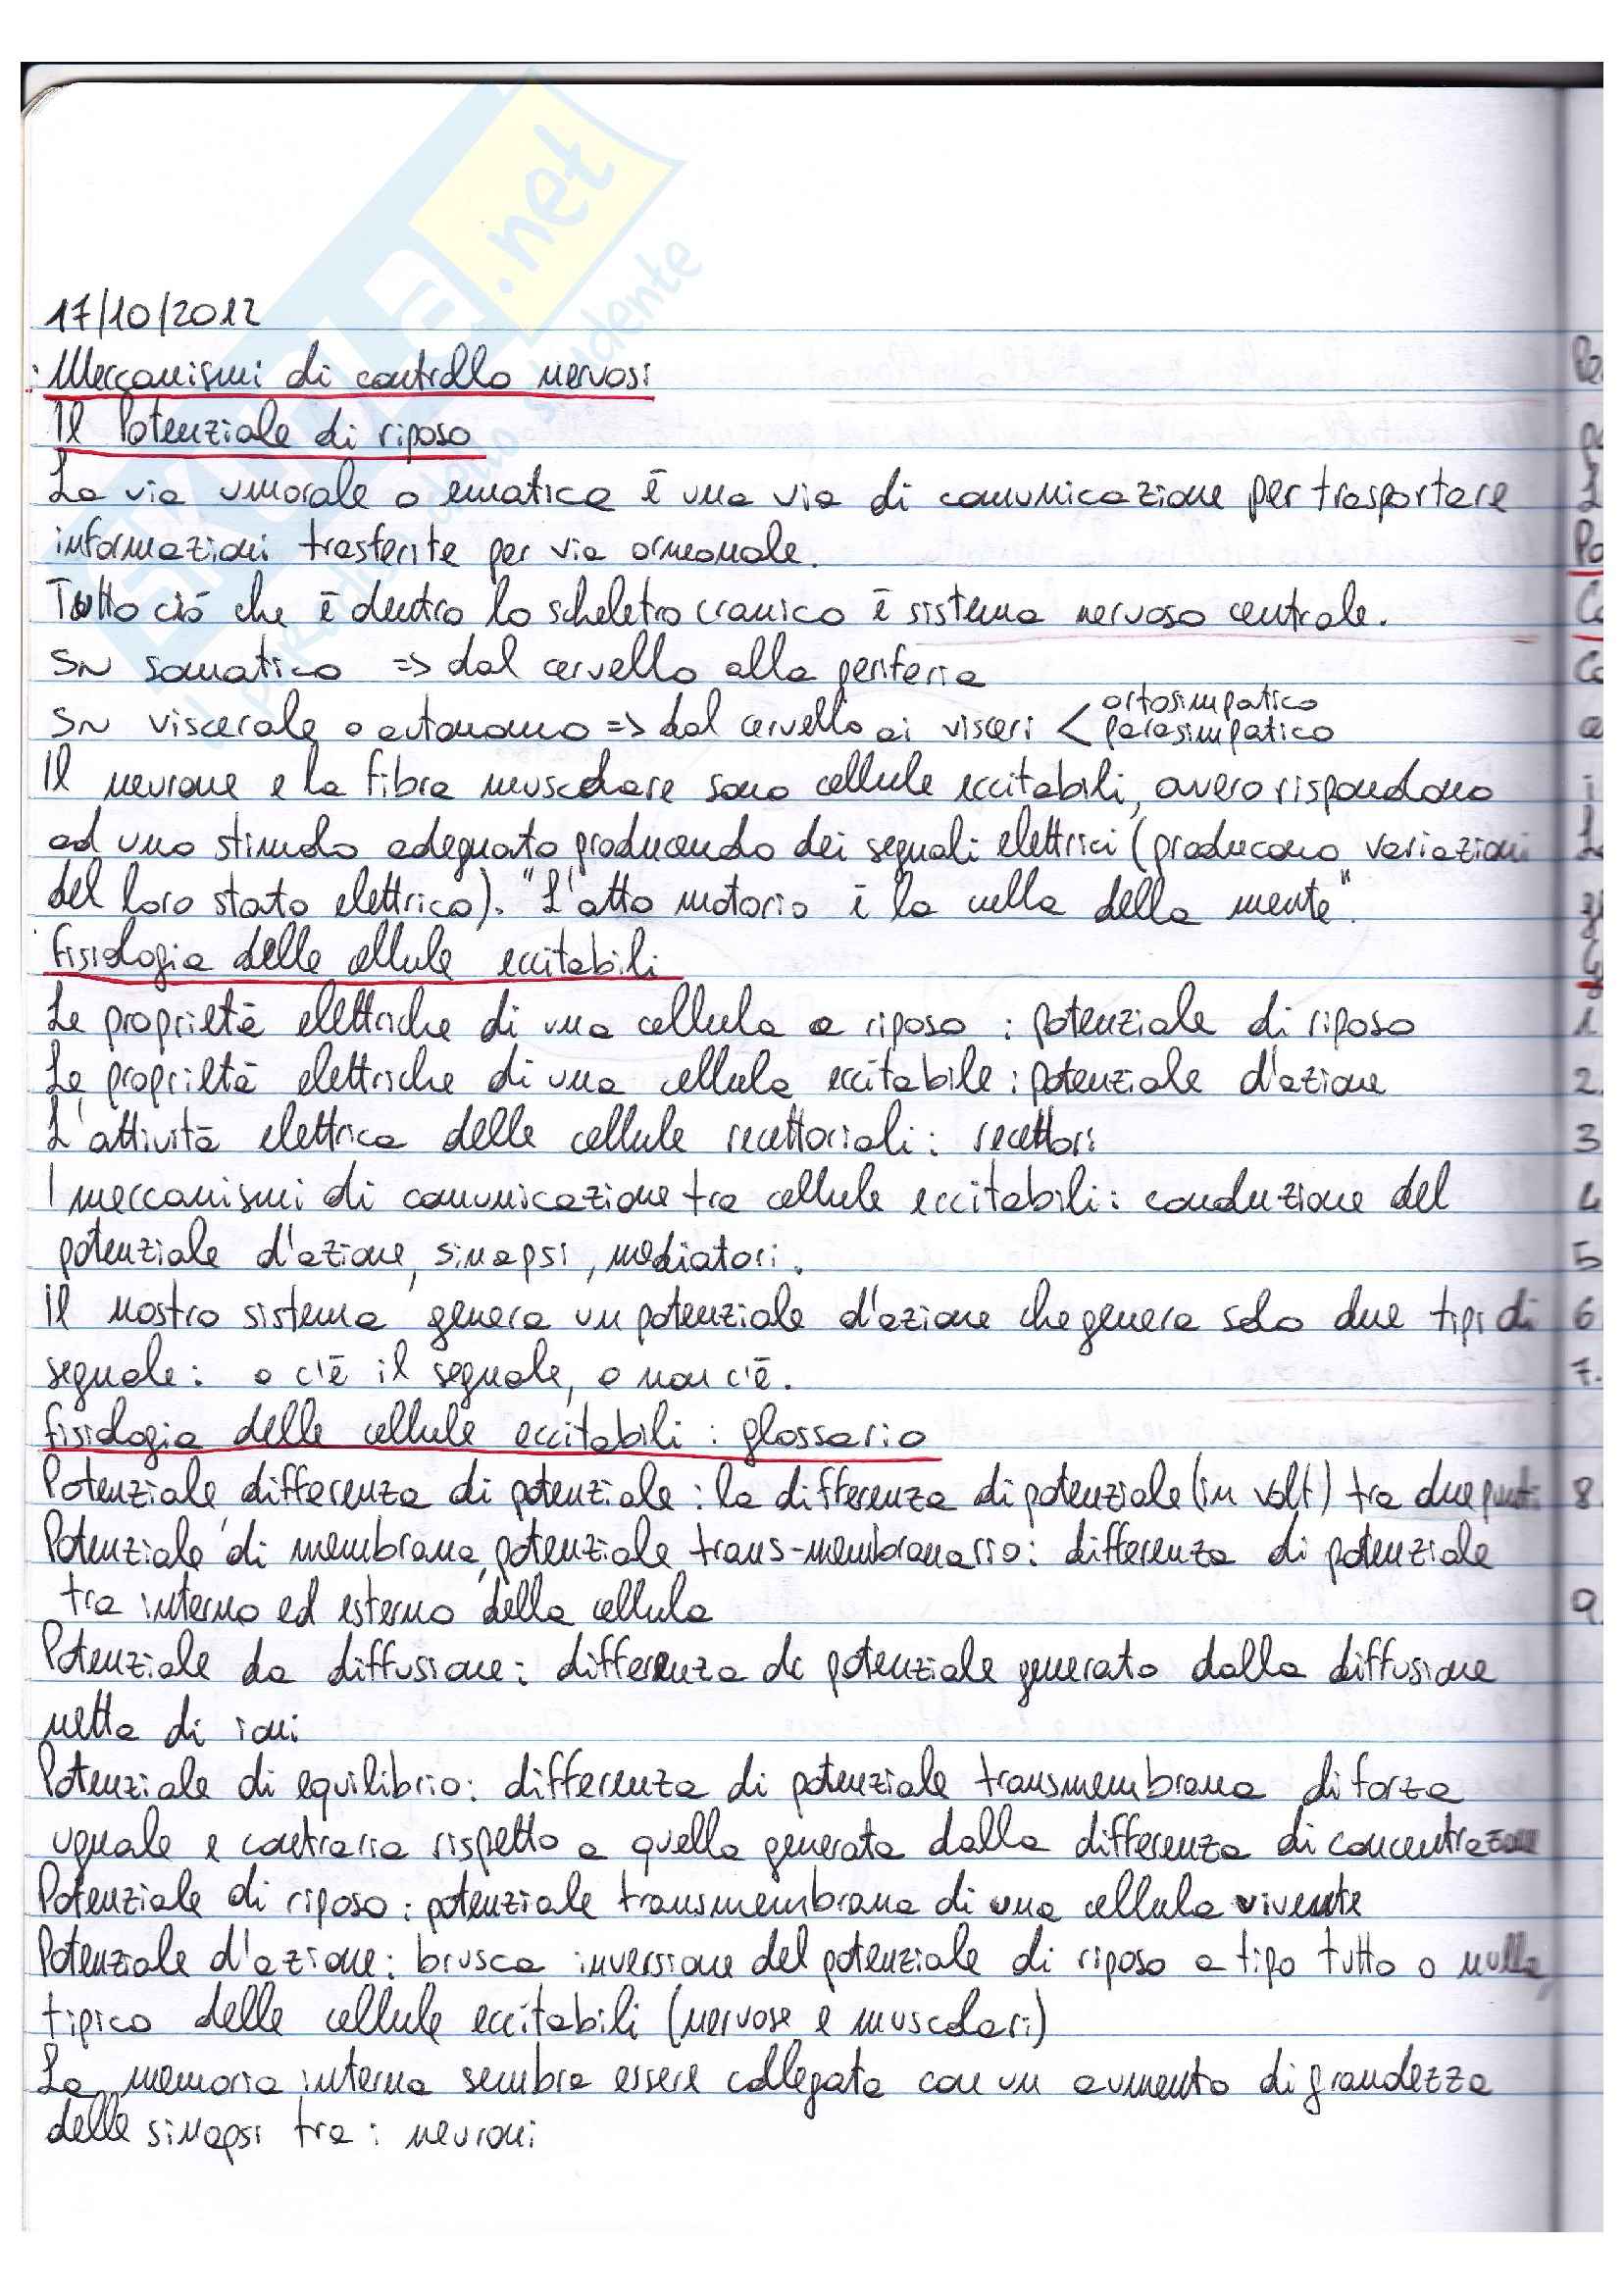 17/10/2012
Meccanismi di controllo nervosi
Il Potenziale di riposo
La via umorale o ematica è una via di comunicazione per trasportare
informazioni trasferite per via ormonale.
Tutto ciò che è dentro lo scheletro cranico è sistema nervoso centrale.
SN somatico => dal cervello alla periferia
SN viscerale o autonomo => dal cervello ai visceri < ortosimpatico
parasimpatico
Il neurone e la fibra muscolare sono cellule eccitabili, ovvero rispondono
ad uno stimolo adeguato producendo dei segnali elettrici (producono variazioni
del loro stato elettrico). "L'atto motorio è la culla della mente".
Fisiologia delle cellule eccitabili
Le proprietà elettriche di una cellula a riposo : potenziale di riposo
Le proprietà elettriche di una cellula eccitabile : potenziale d'azione
L'attività elettrica delle cellule recettoriali : recettori
I meccanismi di comunicazione tra cellule eccitabili : conduzione del
potenziale d'azione, sinapsi, mediatori.
Il nostro sistema genera un potenziale d'azione che genera solo due tipi di
segnale : o c'è il segnale, o non c'è.
Fisiologia delle cellule eccitabili : glossario
Potenziale, differenza di potenziale : la differenza di potenziale (in volt) tra due punti
Potenziale di membrana, potenziale trans-membranario : differenza di potenziale
tra interno ed esterno della cellula
Potenziale da diffusione : differenza di potenziale generato dalla diffusione
netta di ioni
Potenziale di equilibrio : differenza di potenziale transmembrana di forza
uguale e contraria rispetto a quella generata dalla differenza di concentrazione
Potenziale di riposo : potenziale transmembrana di una cellula vivente
Potenziale d'azione : brusca inversione del potenziale di riposo a tipo tutto o nulla,
tipico delle cellule eccitabili (nervose e muscolari)
La memoria interna sembra essere collegata con un aumento di grandezza
delle sinapsi tra i neuroni